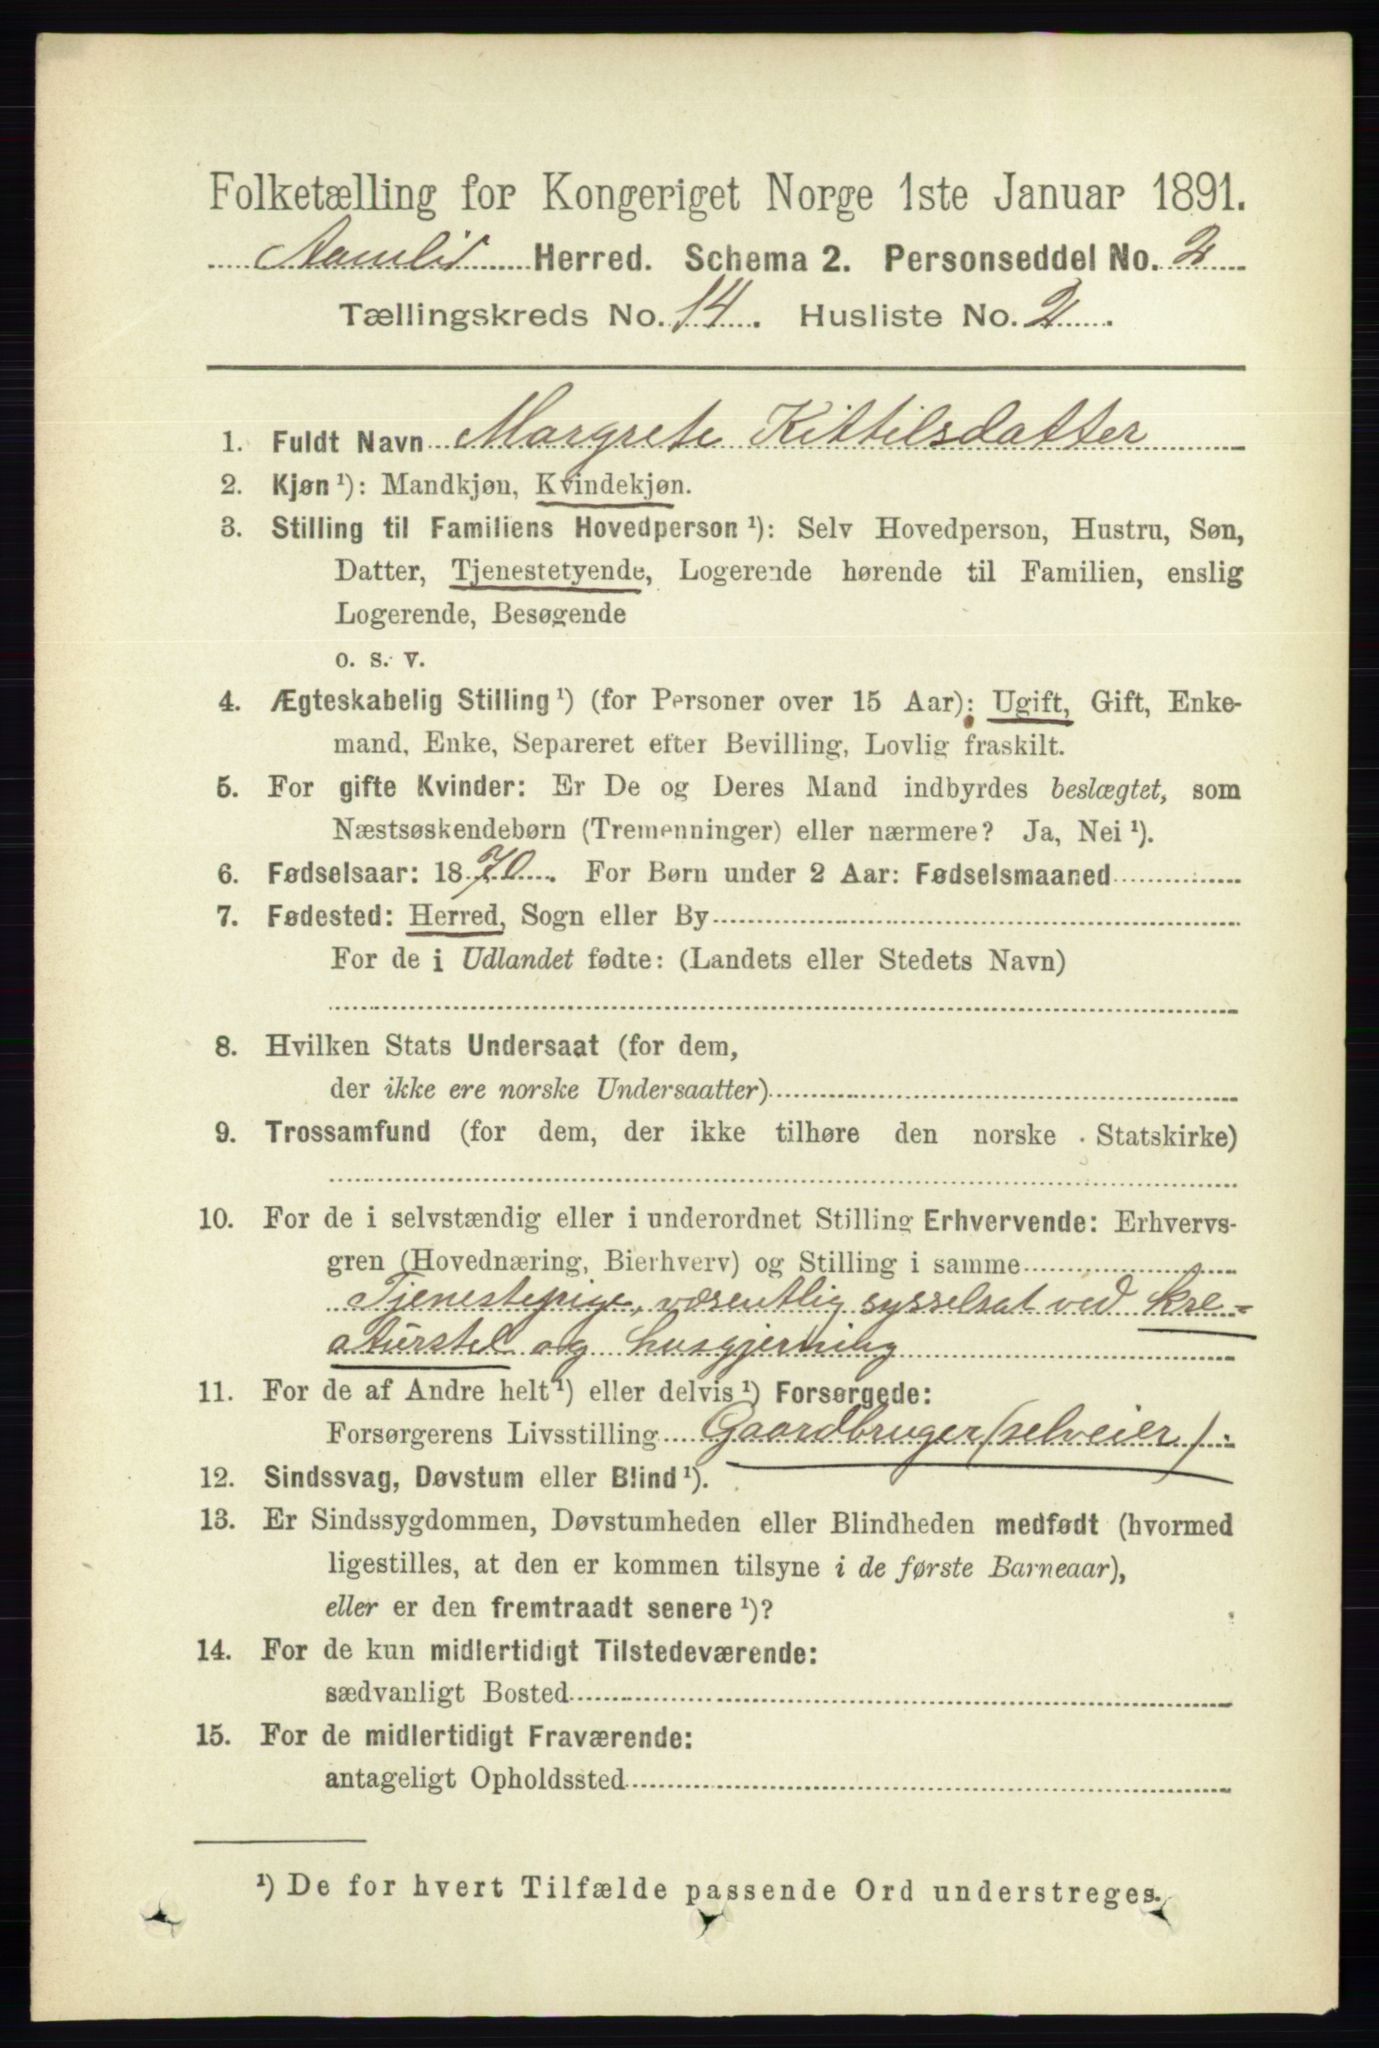 Folketælling for Kongeriget Norge 1ste Januar 1891.
Aamlid Herred. Schema 2. Personseddel No. 2
Tællingskreds No. 14. Husliste No. 2.
1. Fuldt Navn Margrete Kittilsdatter
2. Kjøn ¹): Mandkjøn, Kvindekjøn.
3. Stilling til Familiens Hovedperson ¹): Selv Hovedperson, Hustru, Søn,
Datter, Tjenestetyende, Logerende hørende til Familien, enslig
Logerende, Besøgende
o. s. v.
4. Ægteskabelig Stilling ¹) (for Personer over 15 Aar): Ugift, Gift, Enke-
mand, Enke, Separeret efter Bevilling, Lovlig fraskilt.
5. For gifte Kvinder: Er De og Deres Mand indbyrdes beslægtet, som
Næstsøskendebørn (Tremenninger) eller nærmere? Ja, Nei ¹).
6. Fødselsaar: 1870. For Børn under 2 Aar: Fødselsmaaned
7. Fødested: Herred, Sogn eller By
For de i Udlandet fødte: (Landets eller Stedets Navn)
8. Hvilken Stats Undersaat (for dem,
der ikke ere norske Undersaatter)
9. Trossamfund (for dem, der ikke tilhøre den norske Statskirke)
10. For de i selvstændig eller i underordnet Stilling Erhvervende: Erhvervs-
gren (Hovednæring, Bierhverv) og Stilling i samme
Tjenestepige, væsentlig sysselsat ved kre-
aturstel og husgjerning
11. For de af Andre helt ¹) eller delvis ¹) Forsørgede:
Forsørgerens Livsstilling Gaardbruger (selveier)
12. Sindssvag, Døvstum eller Blind ¹).
13. Er Sindssygdommen, Døvstumheden eller Blindheden medfødt (hvormed
ligestilles, at den er kommen tilsyne i de første Barneaar),
eller er den fremtraadt senere ¹)?
14. For de kun midlertidigt Tilstedeværende:
sædvanligt Bosted
15. For de midlertidigt Fraværende:
antageligt Opholdssted
¹) De for hvert Tilfælde passende Ord understreges.